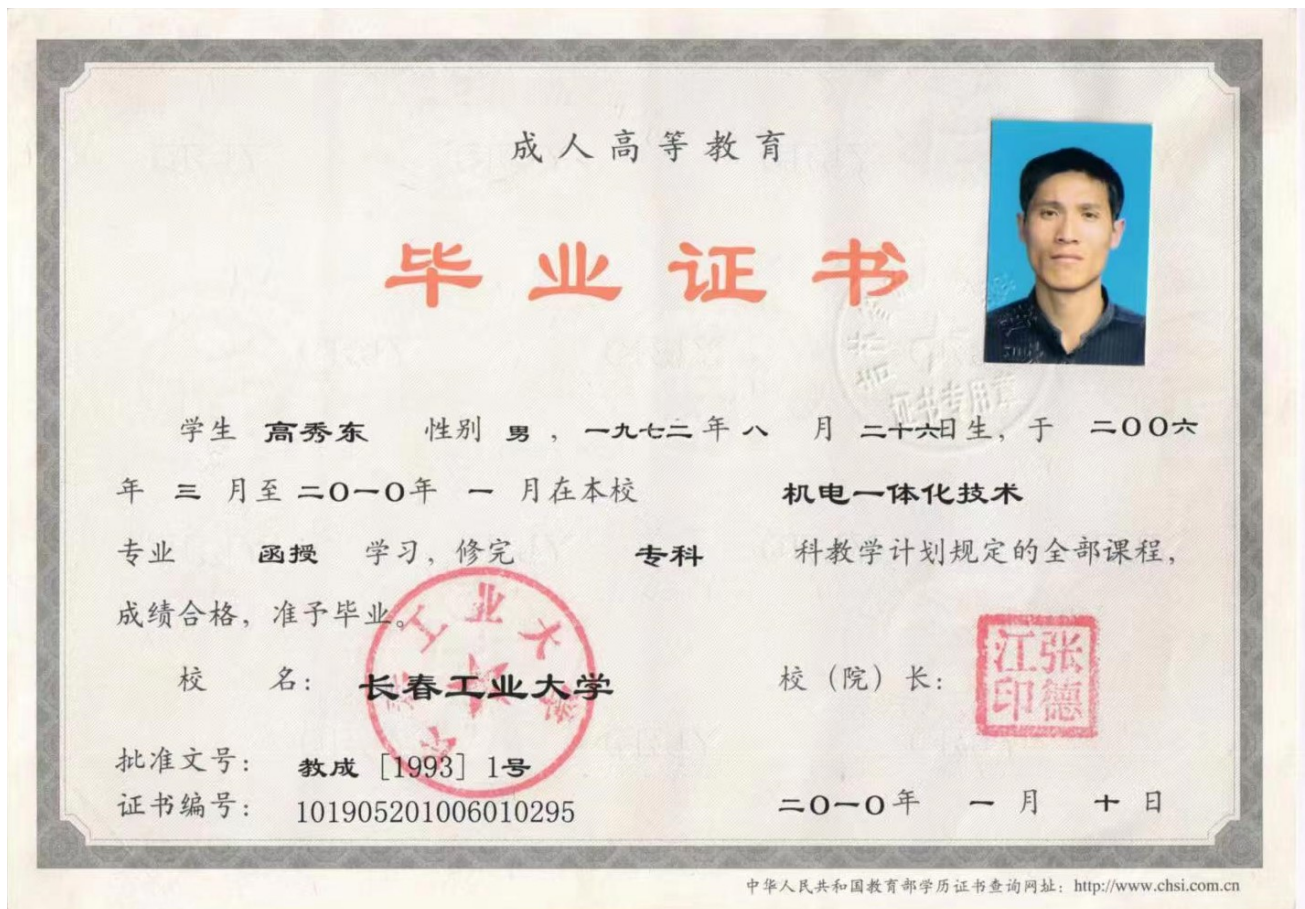 成人高等教育
毕业证书
学生 高秀东 性别 男 ，一九七二年 八 月 二十六日生，于 二〇〇六
年 三 月至 二〇一〇年 一 月在本校 机电一体化技术
专业 函授 学习，修完 专科 科教学计划规定的全部课程，
成绩合格，准予毕业。
校 名：长春工业大学 校（院）长：
张德江印
批准文号：教成［1993］1号
证书编号：101905201006010295 二〇一〇年 一 月 十 日
证书专用章
中华人民共和国教育部学历证书查询网址：http://www.chsi.com.cn